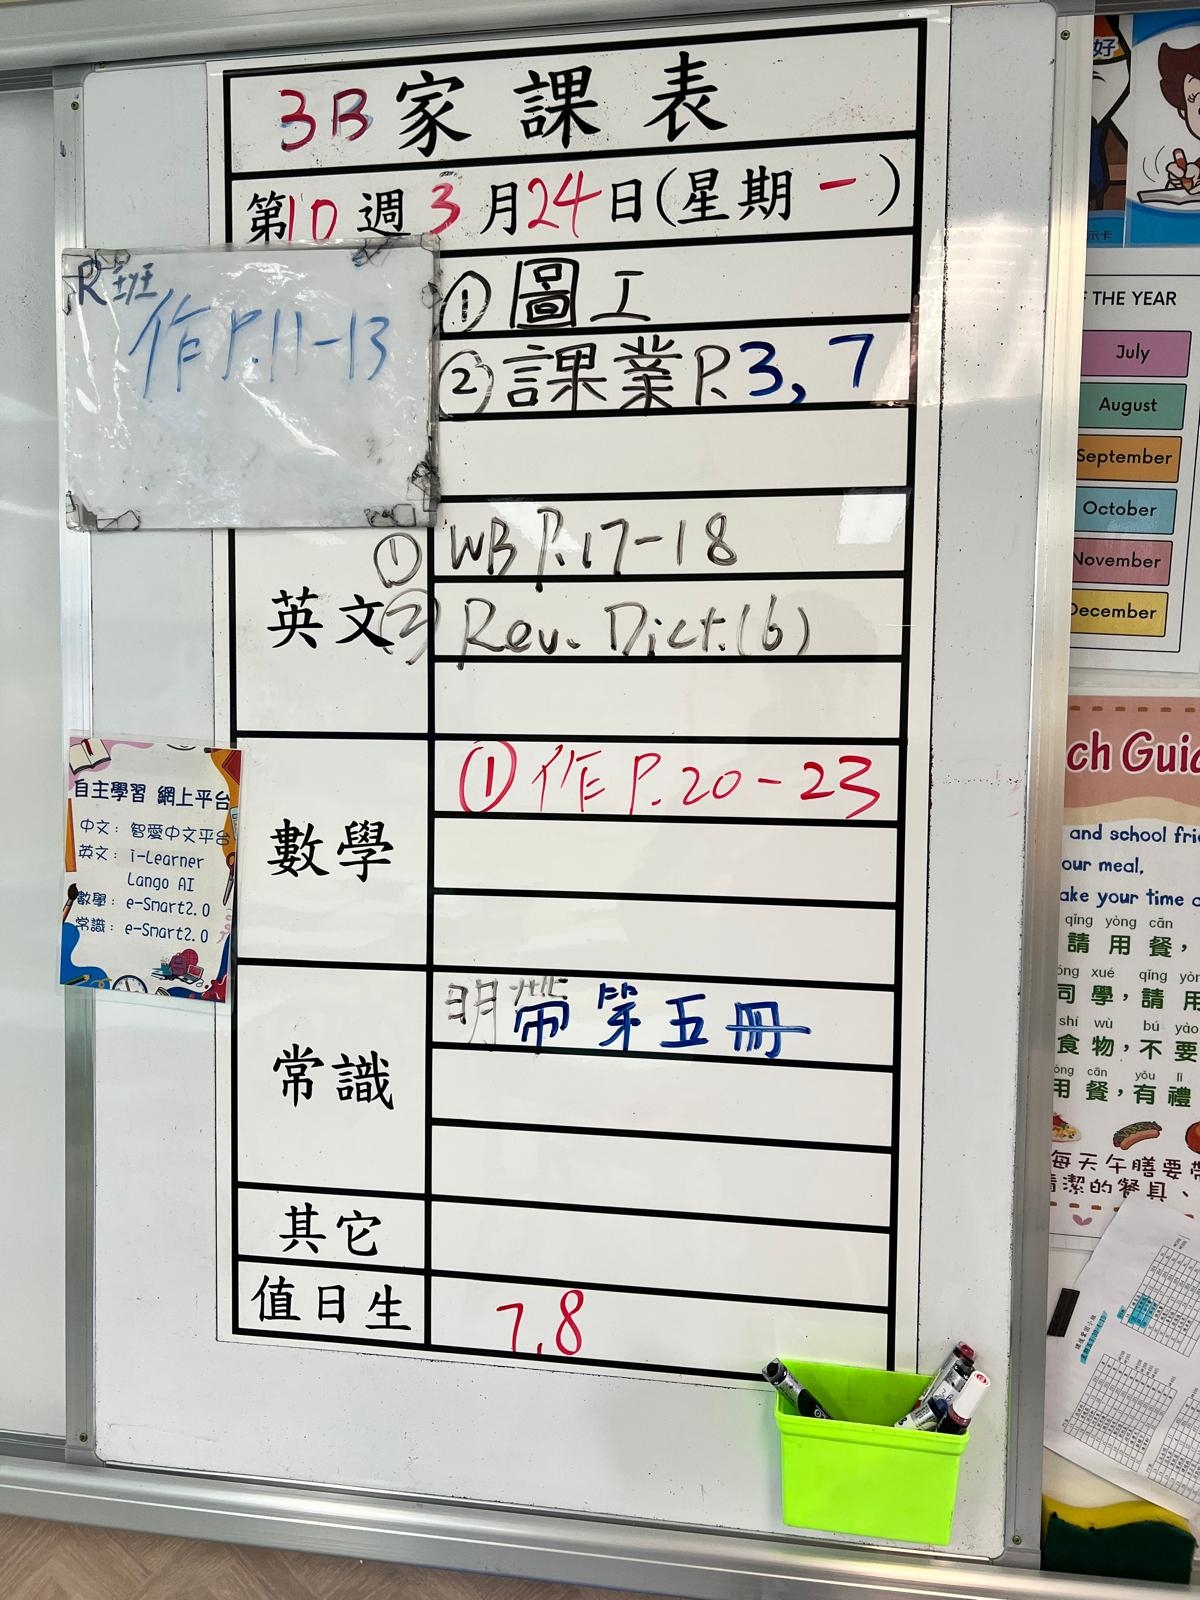 3B家課表
第10週3月24日(星期一)
R班
作P.11-13
①圖工
②課業P.3,7
英文
①WB P.17-18
②Rev. Dict.(6)
數學
①作P.20-23
常識
明帶第五冊
其它
值日生
7,8
自主學習 網上平台
中文：智愛中文平台
英文：i-Learner
Lango AI
數學：e-Smart2.0
常識：e-Smart2.0
好
示卡
THE YEAR
July
August
September
October
November
December
and school
our meal,
your time
qǐng yòng cān
請用餐，
xué qǐng
同學，請用
shí wù bú yào
食物，不要
cān yǒu lǐ
用餐，有禮
每天午膳要帶
清潔的餐具、